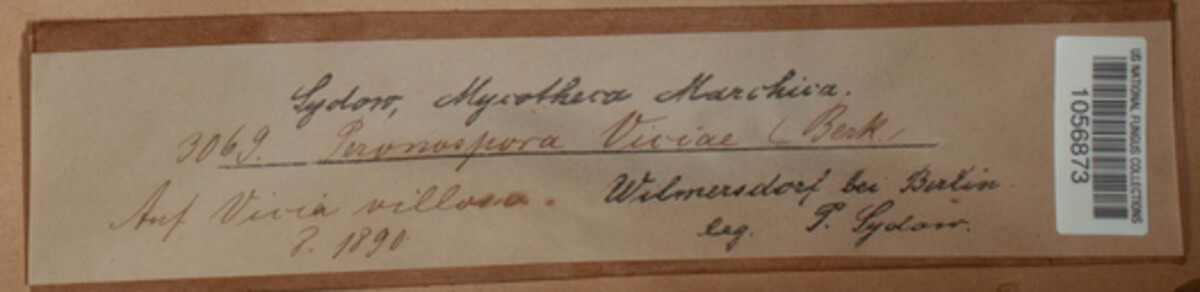 Sydow, Mycotheca Marchica.
3069. Peronospora Viciae (Berk.
Auf Vicia villosa.
7. 1890.
Wilmersdorf bei Berlin.
leg. P. Sydow.
US NATIONAL FUNGUS COLLECTIONS
1056873